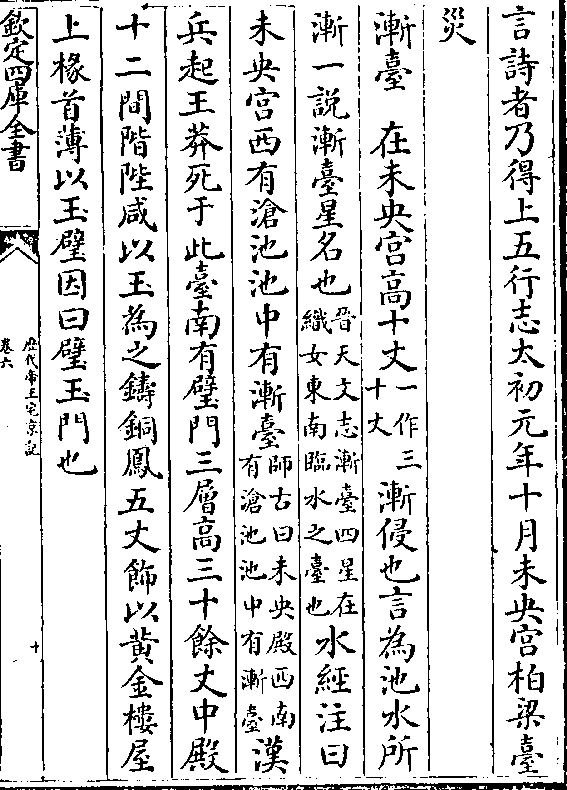 言詩者乃得上五行志太初元年十月未央宫柏梁臺
災
漸臺　在未央宫高十丈一作三十丈漸侵也言為池水所
漸一説漸臺星名也晉天文志漸臺四星在織女東南臨水之臺也水經注曰
未央宫西有滄池池中有漸臺師古曰未央殿西南有滄池池中有漸臺漢
兵起王莽死于此臺南有璧門三層高三十餘丈中殿
十二間階陛咸以玉為之鑄銅鳳五丈飾以黄金樓屋
上椽首薄以玉璧因曰璧玉門也
欽定四庫全書
歴代帝王宅京記
卷六
十